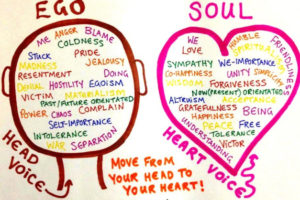 EGO
ME ANGER BLAME
COLDNESS
STUCK PRIDE
MADNESS JEALOUSY
RESENTMENT DOING
DENIAL HOSTILITY EGOISM
VICTIM MATERIALISM
PAST/FUTURE ORIENTATED
POWER CHAOS COMPLAIN
SELF-IMPORTANCE
INTOLERANCE
WAR SEPARATION
HEAD
VOICE
SOUL
WE HUMBLE FRIENDLINESS
LOVE SPIRITUAL
SYMPATHY WE-IMPORTANCE
CO-HAPPINESS UNITY SIMPLICITY
WISDOM FORGIVENESS
NOW(PRESENT) ORIENTATED
ALTRUISM ACCEPTANCE
GRATEFULNESS BEING
HAPPINESS
PEACE FREE
TOLERANCE
UNDERSTANDING VICTOR
HEART VOICE
MOVE FROM
YOUR HEAD TO
YOUR HEART!